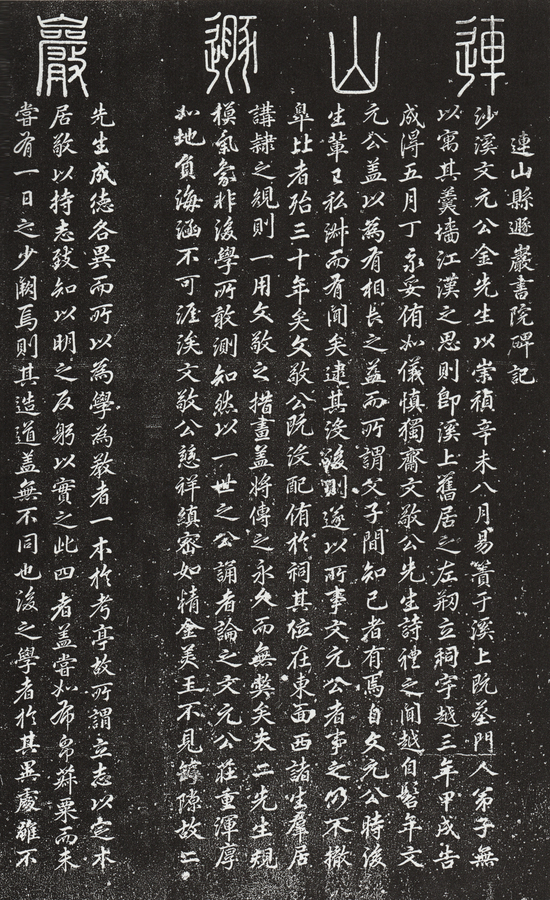 連山遯巖
連山縣遯巖書院碑記
沙溪文元公金先生以崇禎辛未八月易簀于溪上旣葬門人弟子無
以寓其羹墻江漢之思則卽溪上舊居之左刱立祠宇越三年甲戌告
成得五月丁亥妥侑如儀愼獨齋文敬公先生詩禮之間越自髫年文
元公盖以爲有相長之益而所謂父子間知己者有焉自文元公時後
生輩已私淑而有聞矣逮其沒後則遂以所事文元公者事之仍不撤
臯比者殆三十年矣文敬公旣沒配侑於祠其位在東面西諸生羣居
講隷之規則一用文敬之措畫盖將傳之永久而無弊矣夫二先生規
模氣象非後學所敢測知然以一世之公誦者論之文元公莊重渾厚
如地負海涵不可涯涘文敬公慈祥縝密如精金美玉不見罅隙故二
先生成德各異而所以爲學爲敎者一本於考亭故所謂立志以定本
居敬以持志致知以明之反躬以實之此四者盖嘗如布帛菽粟而未
嘗有一日之少闕焉則其造道盖無不同也後之學者於其異處雖不